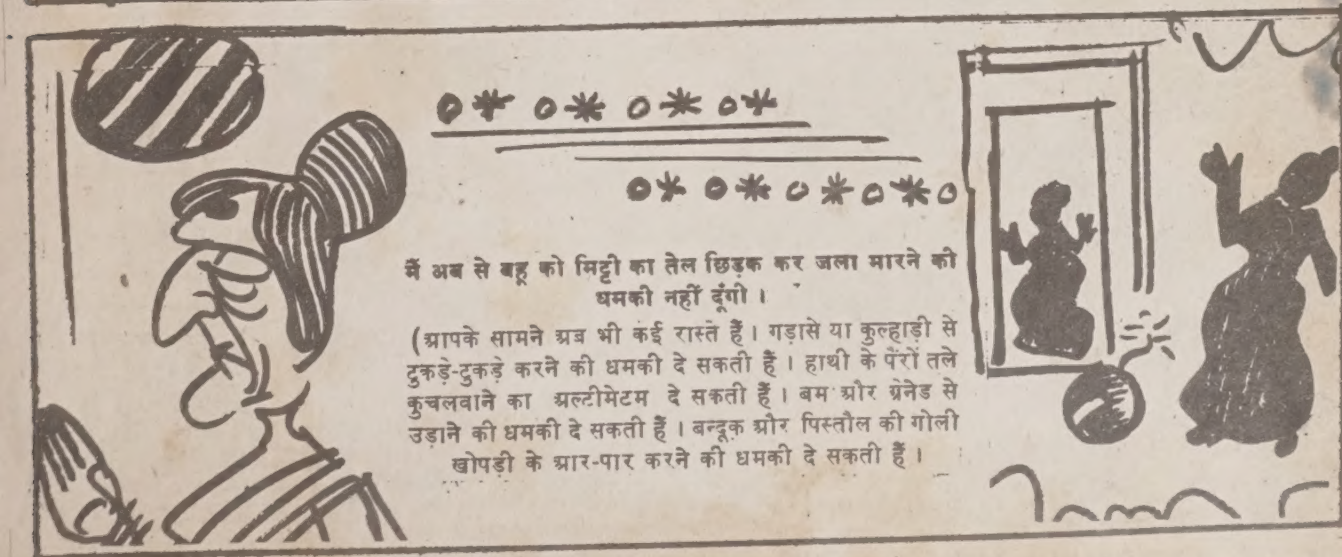 मैं अब से बहू को मिट्टी का तेल छिड़क कर जला मारने की
धमकी नहीं दूंगी ।
(आपके सामने अब भी कई रास्ते हैं । गड़ासे या कुल्हाड़ी से
टुकड़े-टुकड़े करने की धमकी दे सकती हैं । हाथी के पैरों तले
कुचलवाने का अल्टीमेटम दे सकती हैं । बम और ग्रेनेड से
उड़ाने की धमकी दे सकती हैं । बन्दूक और पिस्तौल की गोली
खोपड़ी के आर-पार करने की धमकी दे सकती हैं ।